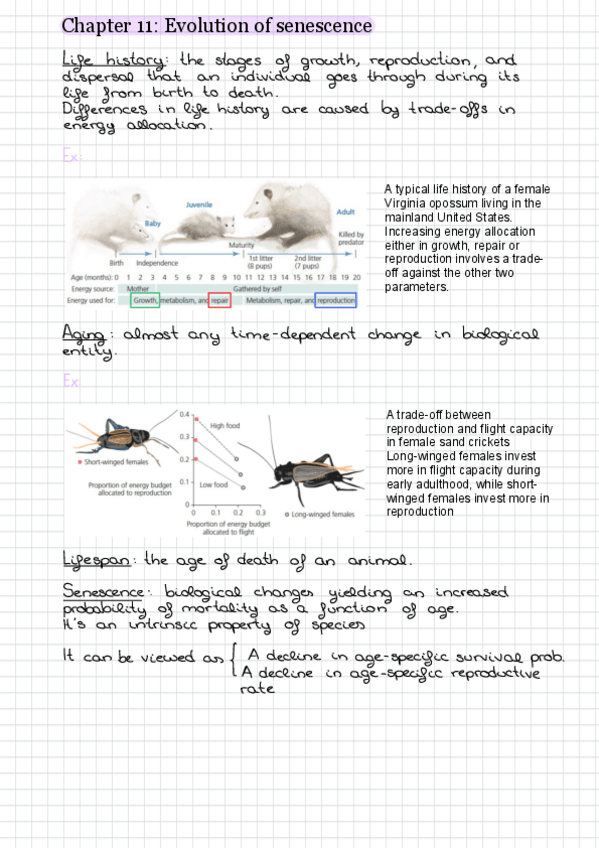 Chapter 11: Evolution of senescence
Life history: the stages of growth, reproduction, and
dispersal that an individual goes through during its
life from birth to death.
Differences in life history are caused by trade-offs in
energy allocation.
Ex:
A typical life history of a female
Virginia opossum living in the
mainland United States.
Increasing energy allocation
either in growth, repair or
reproduction involves a trade-
off against the other two
parameters.
Baby
Juvenile
Adult
Killed by
predator
Maturity
Birth
Independence
1st litter
(8 pups)
2nd litter
(7 pups)
Age (months): 0 1 2 3 4 5 6 7 8 9 10 11 12 13 14 15 16 17 18 19 20
Energy source: Mother Gathered by self
Energy used for: Growth, metabolism, and repair Metabolism, repair, and reproduction
Aging: almost any time-dependent change in biological
entity.
Ex:
A trade-off between
reproduction and flight capacity
in female sand crickets
Long-winged females invest
more in flight capacity during
early adulthood, while short-
winged females invest more in
reproduction
Short-winged females
Proportion of energy budget
allocated to reproduction
0.4
0.3
0.2
0.1
0
High food
Low food
0 0.1 0.2 0.3
Proportion of energy budget
allocated to flight
Long-winged females
Lifespan: the age of death of an animal.
Senescence: biological changes yielding an increased
probability of mortality as a function of age.
It's an intrinsic property of species
It can be viewed as { A decline in age-specific survival prob.
A decline in age-specific reproductive
rate